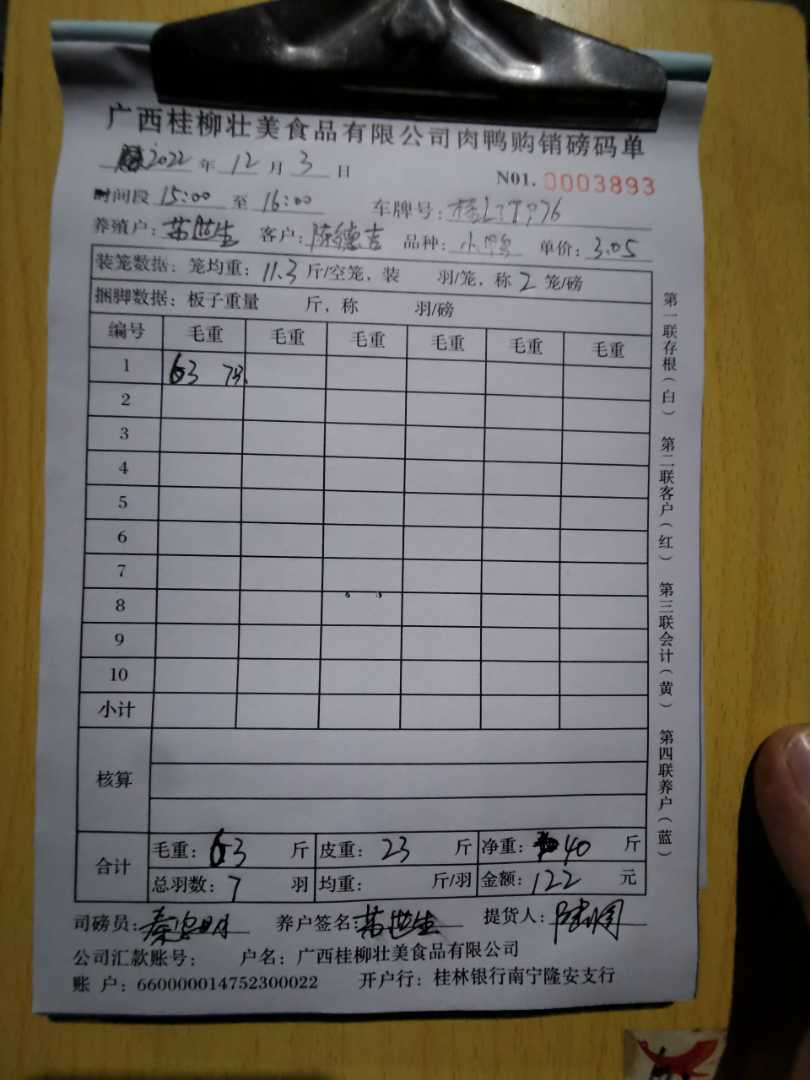 广西桂柳壮美食品有限公司肉鸭购销磅码单
2022 年 12 月 3 日 N01. 0003893
时间段 15:00 至 16:00 车牌号:
养殖户: 世生 客户: 陈德吉 品种: 小鸭 单价: 3.05
装笼数据: 笼均重: 11.3 斤/空笼, 装 羽/笼, 称 2 笼/磅
捆脚数据: 板子重量 斤, 称 羽/磅
编号 毛重 毛重 毛重 毛重 毛重 毛重
1 63 7只
2
3
4
5
6
7
8
9
10
小计
核算
合计 毛重: 63 斤 皮重: 23 斤 净重: 40 斤
总羽数: 7 羽 均重: 斤/羽 金额: 122 元
司磅员: 养户签名: 世生 提货人:
公司汇款账号: 户名: 广西桂柳壮美食品有限公司
账 户: 660000014752300022 开户行: 桂林银行南宁隆安支行
第一联存根(白) 第二联客户(红) 第三联会计(黄) 第四联养户(蓝)